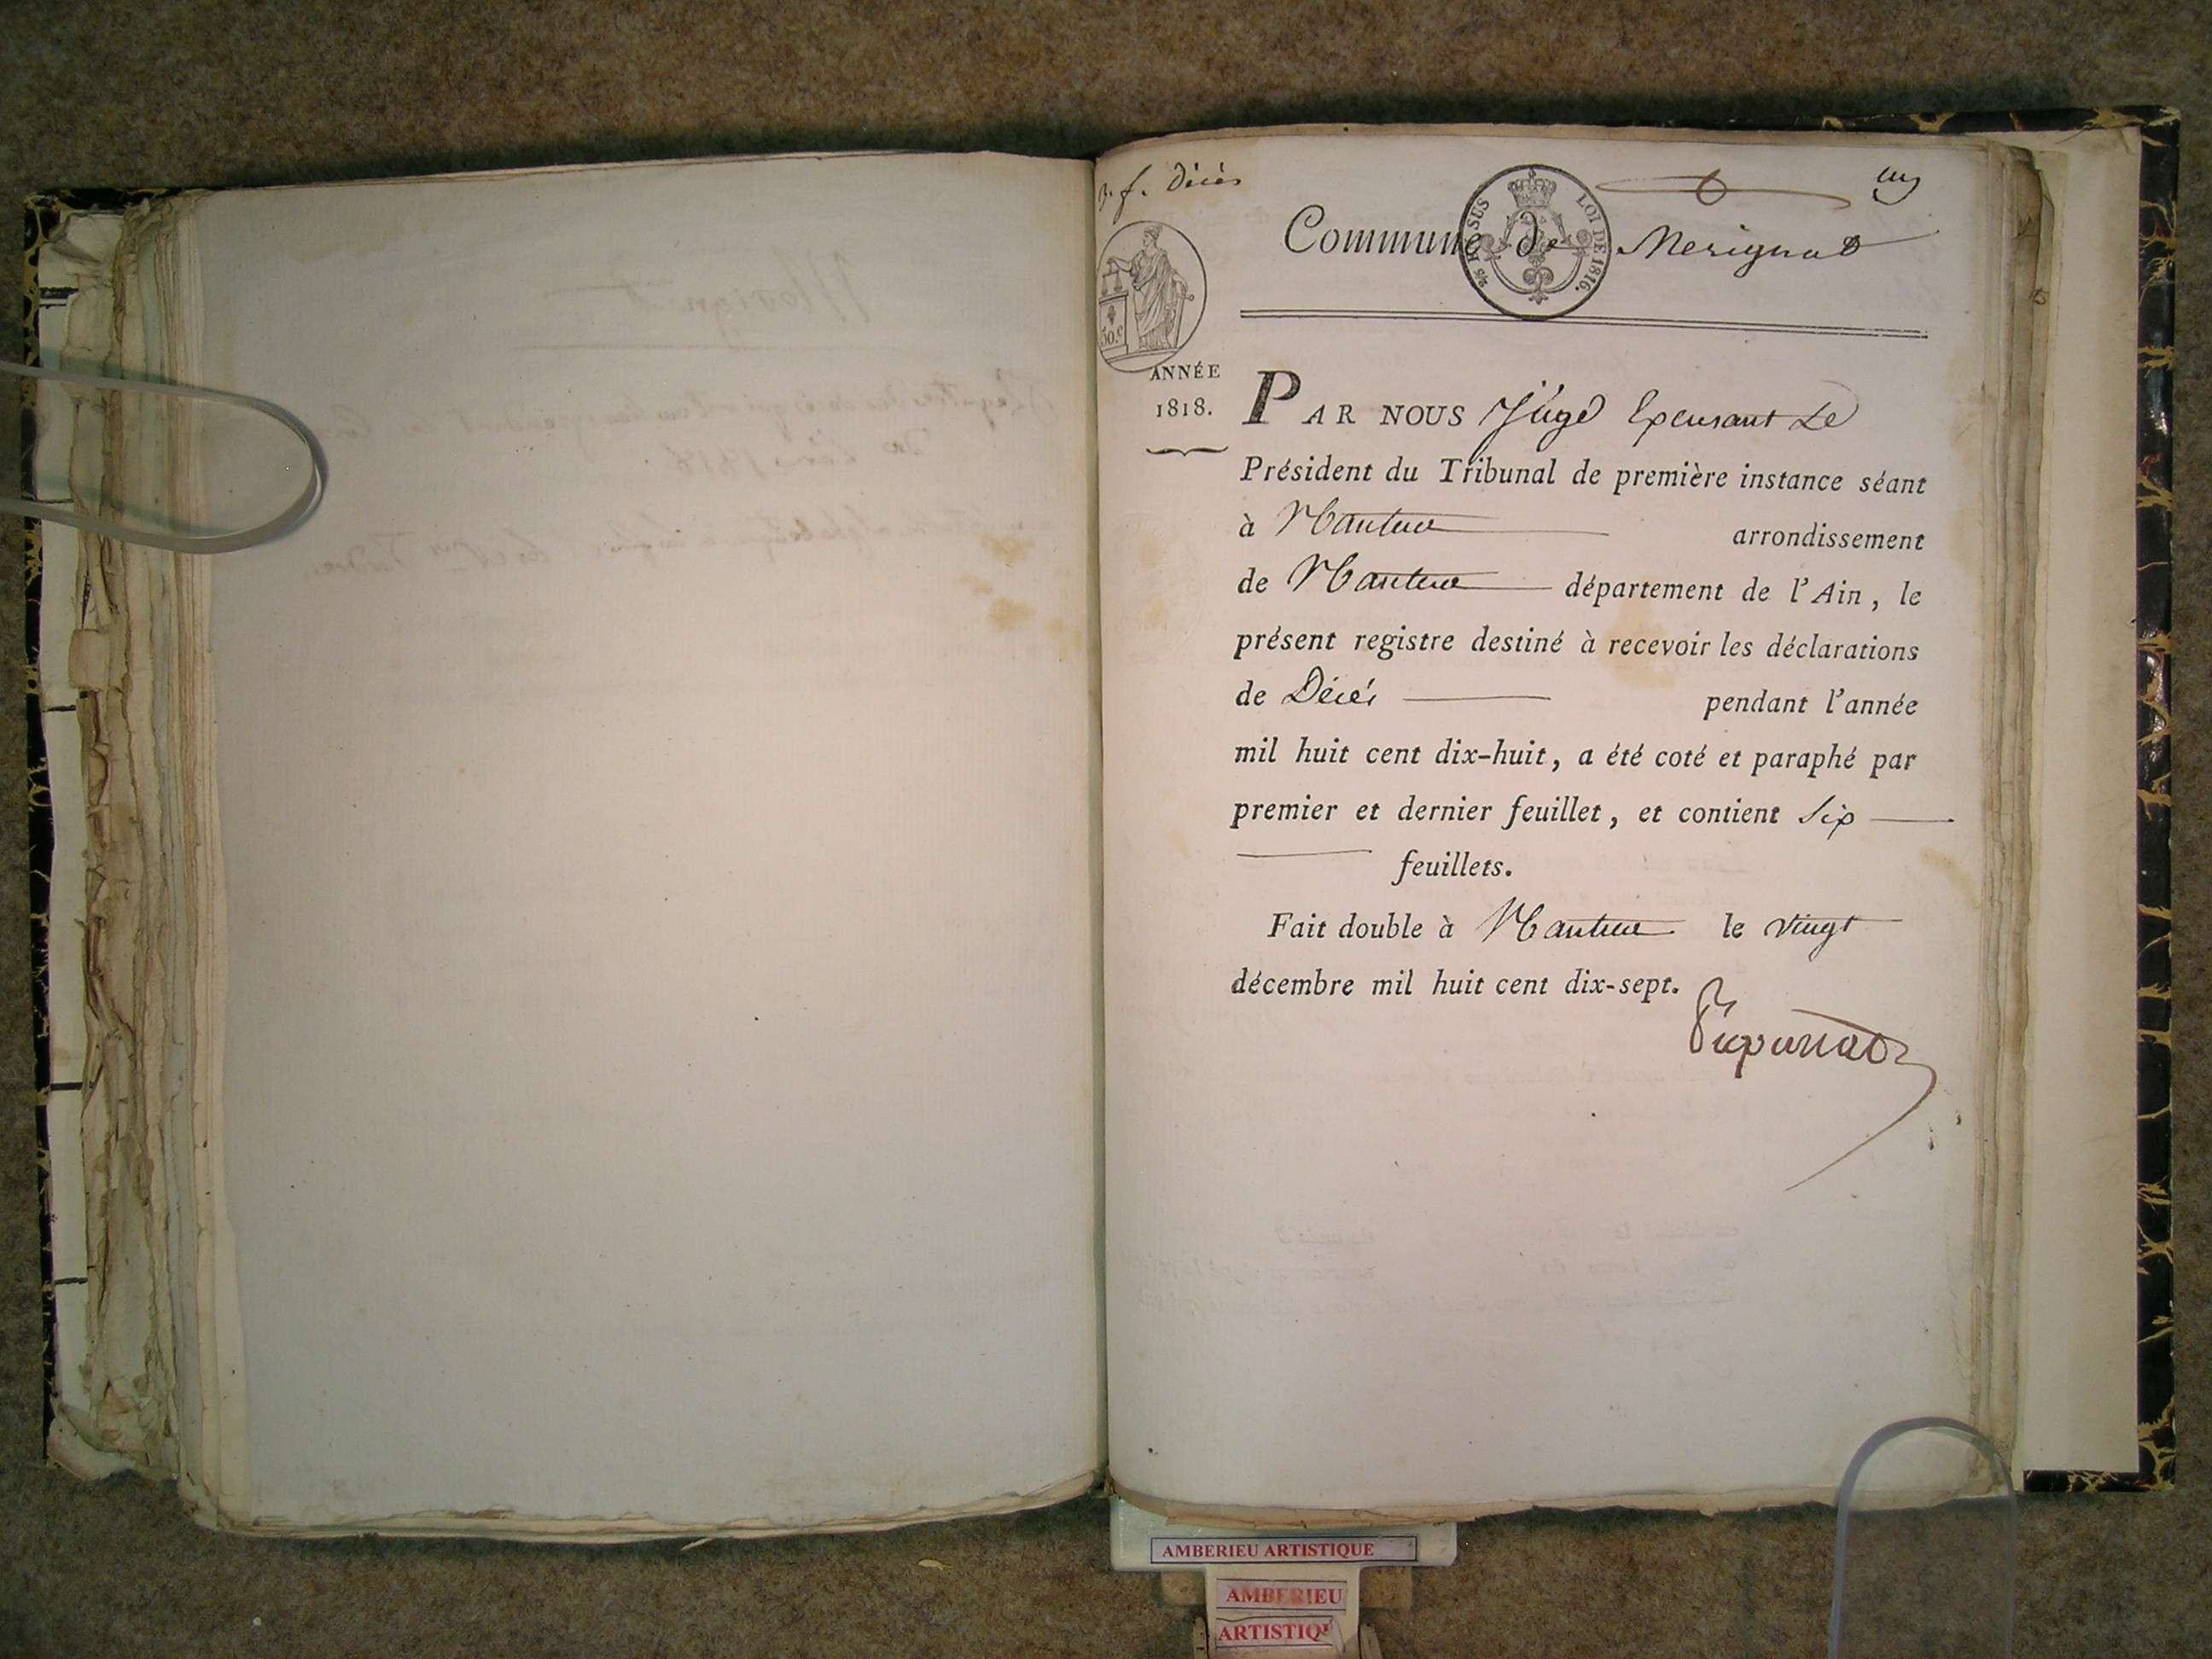 f. Décès
Commune de Merignat
¼ EN SUS LOI DE 1816.
50 c
ANNÉE
1818.
PAR NOUS Juge Exerçant Le
Président du Tribunal de première instance séant
à Nantua arrondissement
de Nantua département de l'Ain, le
présent registre destiné à recevoir les déclarations
de Décès pendant l'année
mil huit cent dix-huit, a été coté et paraphé par
premier et dernier feuillet, et contient Six
feuillets.
Fait double à Nantua le vingt
décembre mil huit cent dix-sept.
AMBERIEU ARTISTIQUE
AMBERIEU
ARTISTIQU